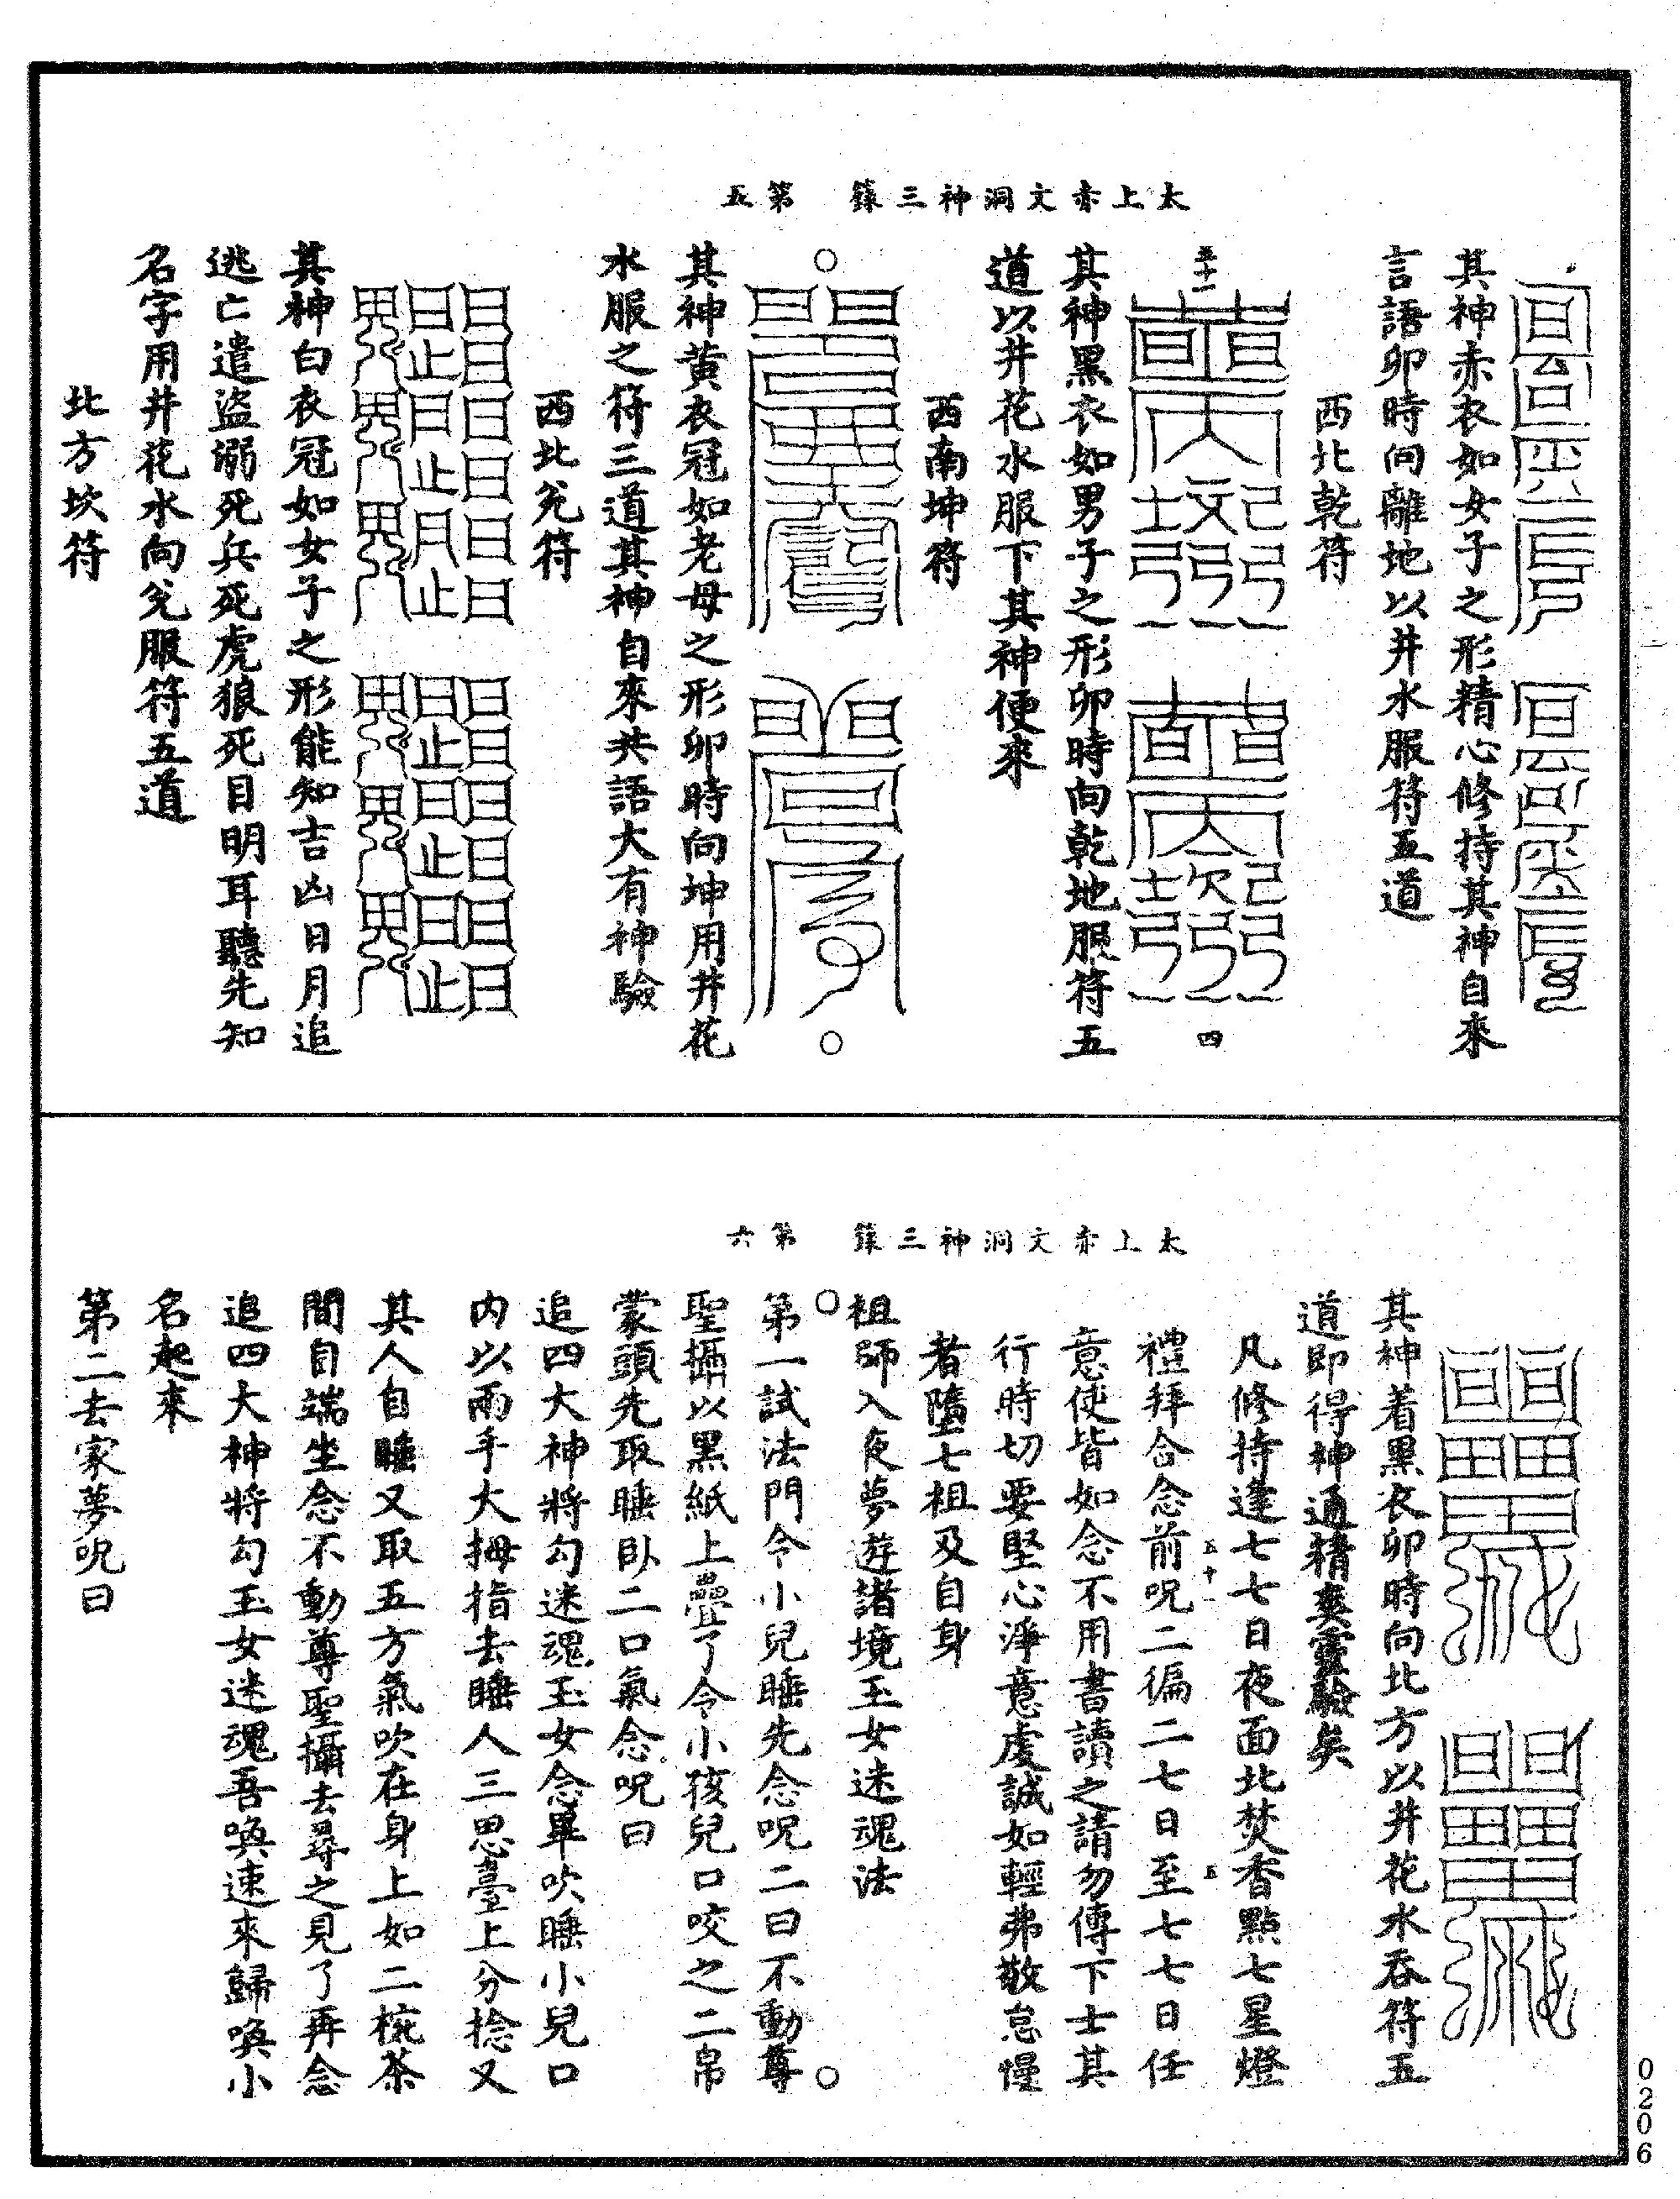 太上赤文洞神三籙　第五
其神赤衣如女子之形精心修持其神自來
言語卯時向離地以井水服符五道
西北乾符
五十一
四
其神黑衣如男子之形卯時向乾地服符五
道以井花水服下其神便來
西南坤符
其神黃衣冠如老母之形卯時向坤用井花
水服之符三道其神自來共語大有神驗
西北兌符
其神白衣冠如女子之形能知吉凶日月追
逃亡遣盜溺死兵死虎狼死目明耳聽先知
名字用井花水向兌服符五道
北方坎符
太上赤文洞神三籙　第六
其神着黑衣卯時向北方以井花水吞符五
道即得神通精爽靈驗矣
凡修持逢七七日夜面北焚香點七星燈
五十一
五
禮拜合念前呪二徧二七日至七七日任
意使皆如念不用書讀之請勿傳下士其
行時切要堅心淨意虔誠如輕弗敬怠慢
者墮七祖及自身
祖師入夜夢遊諸境玉女迷魂法
第一試法門令小兒睡先念呪二曰不動尊
聖攝以黑紙上疊了令小孩兒口咬之二帛
蒙頭先取睡卧二口氣念呪曰
追四大神將勾迷魂玉女念畢吹睡小兒口
内以兩手大拇指去睡人三思臺上分捻又
其人自睡又取五方氣吹在身上如二椀茶
間自端坐念不動尊聖攝去尋之見了再念
追四大神將勾玉女迷魂吾喚速來歸喚小
名起來
第二去家夢呪曰
0206